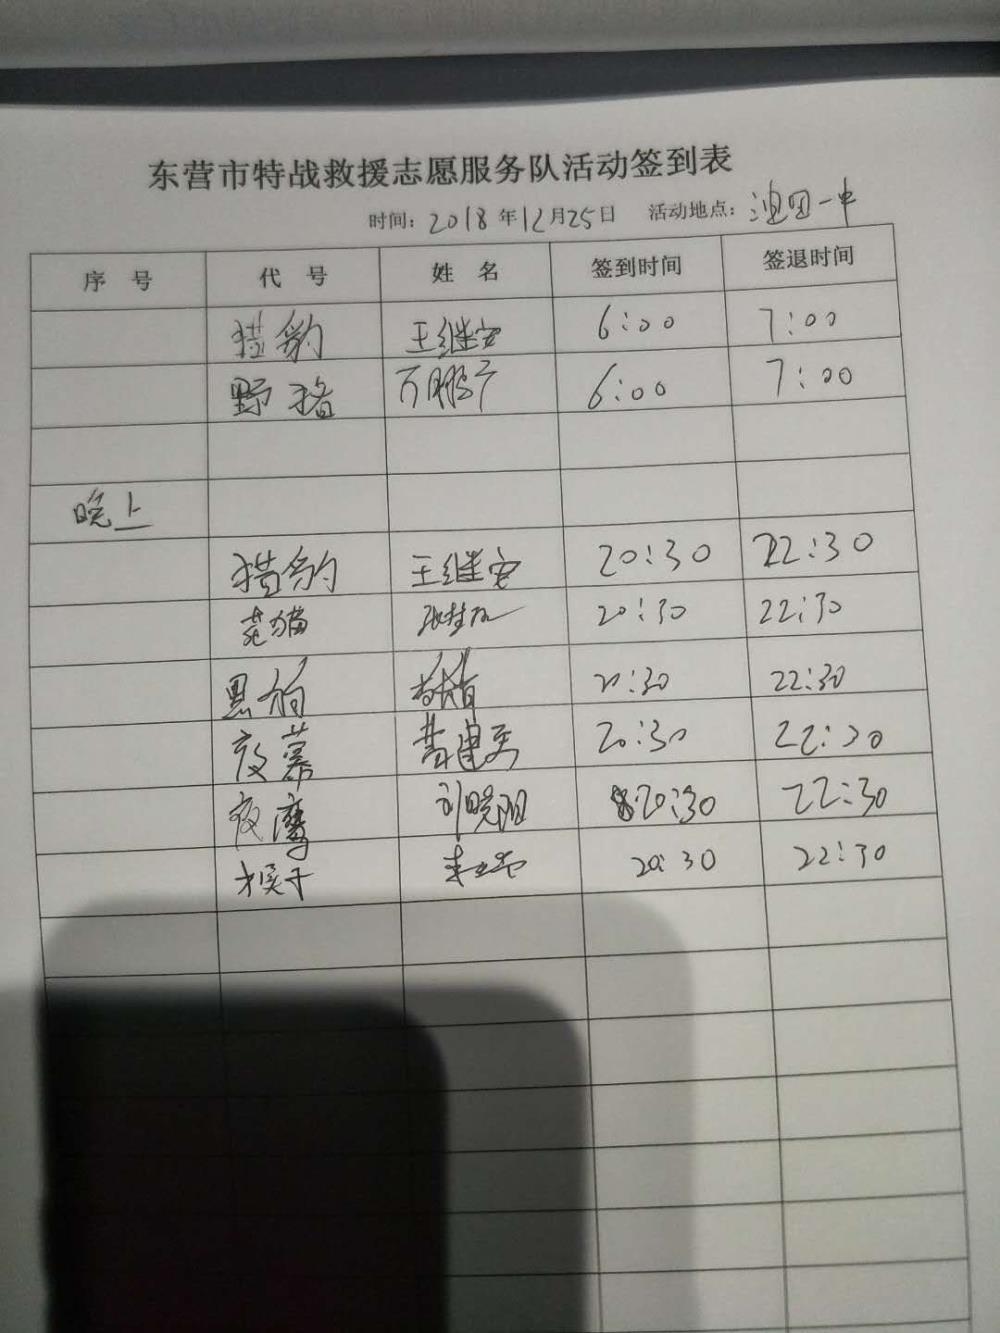 东营市特战救援志愿服务队活动签到表
时间：2018年12月25日 活动地点：油田一中
序号 代号 姓名 签到时间 签退时间
猎豹 王继安 6:00 7:00
野猪 万鹏广 6:00 7:00
晚上
猎豹 王继安 20:30 22:30
花猫 20:30 22:30
黑豹 20:30 22:30
夜幕 20:30 22:30
夜鹰 刘晓阳 20:30 22:30
猴子 20:30 22:30